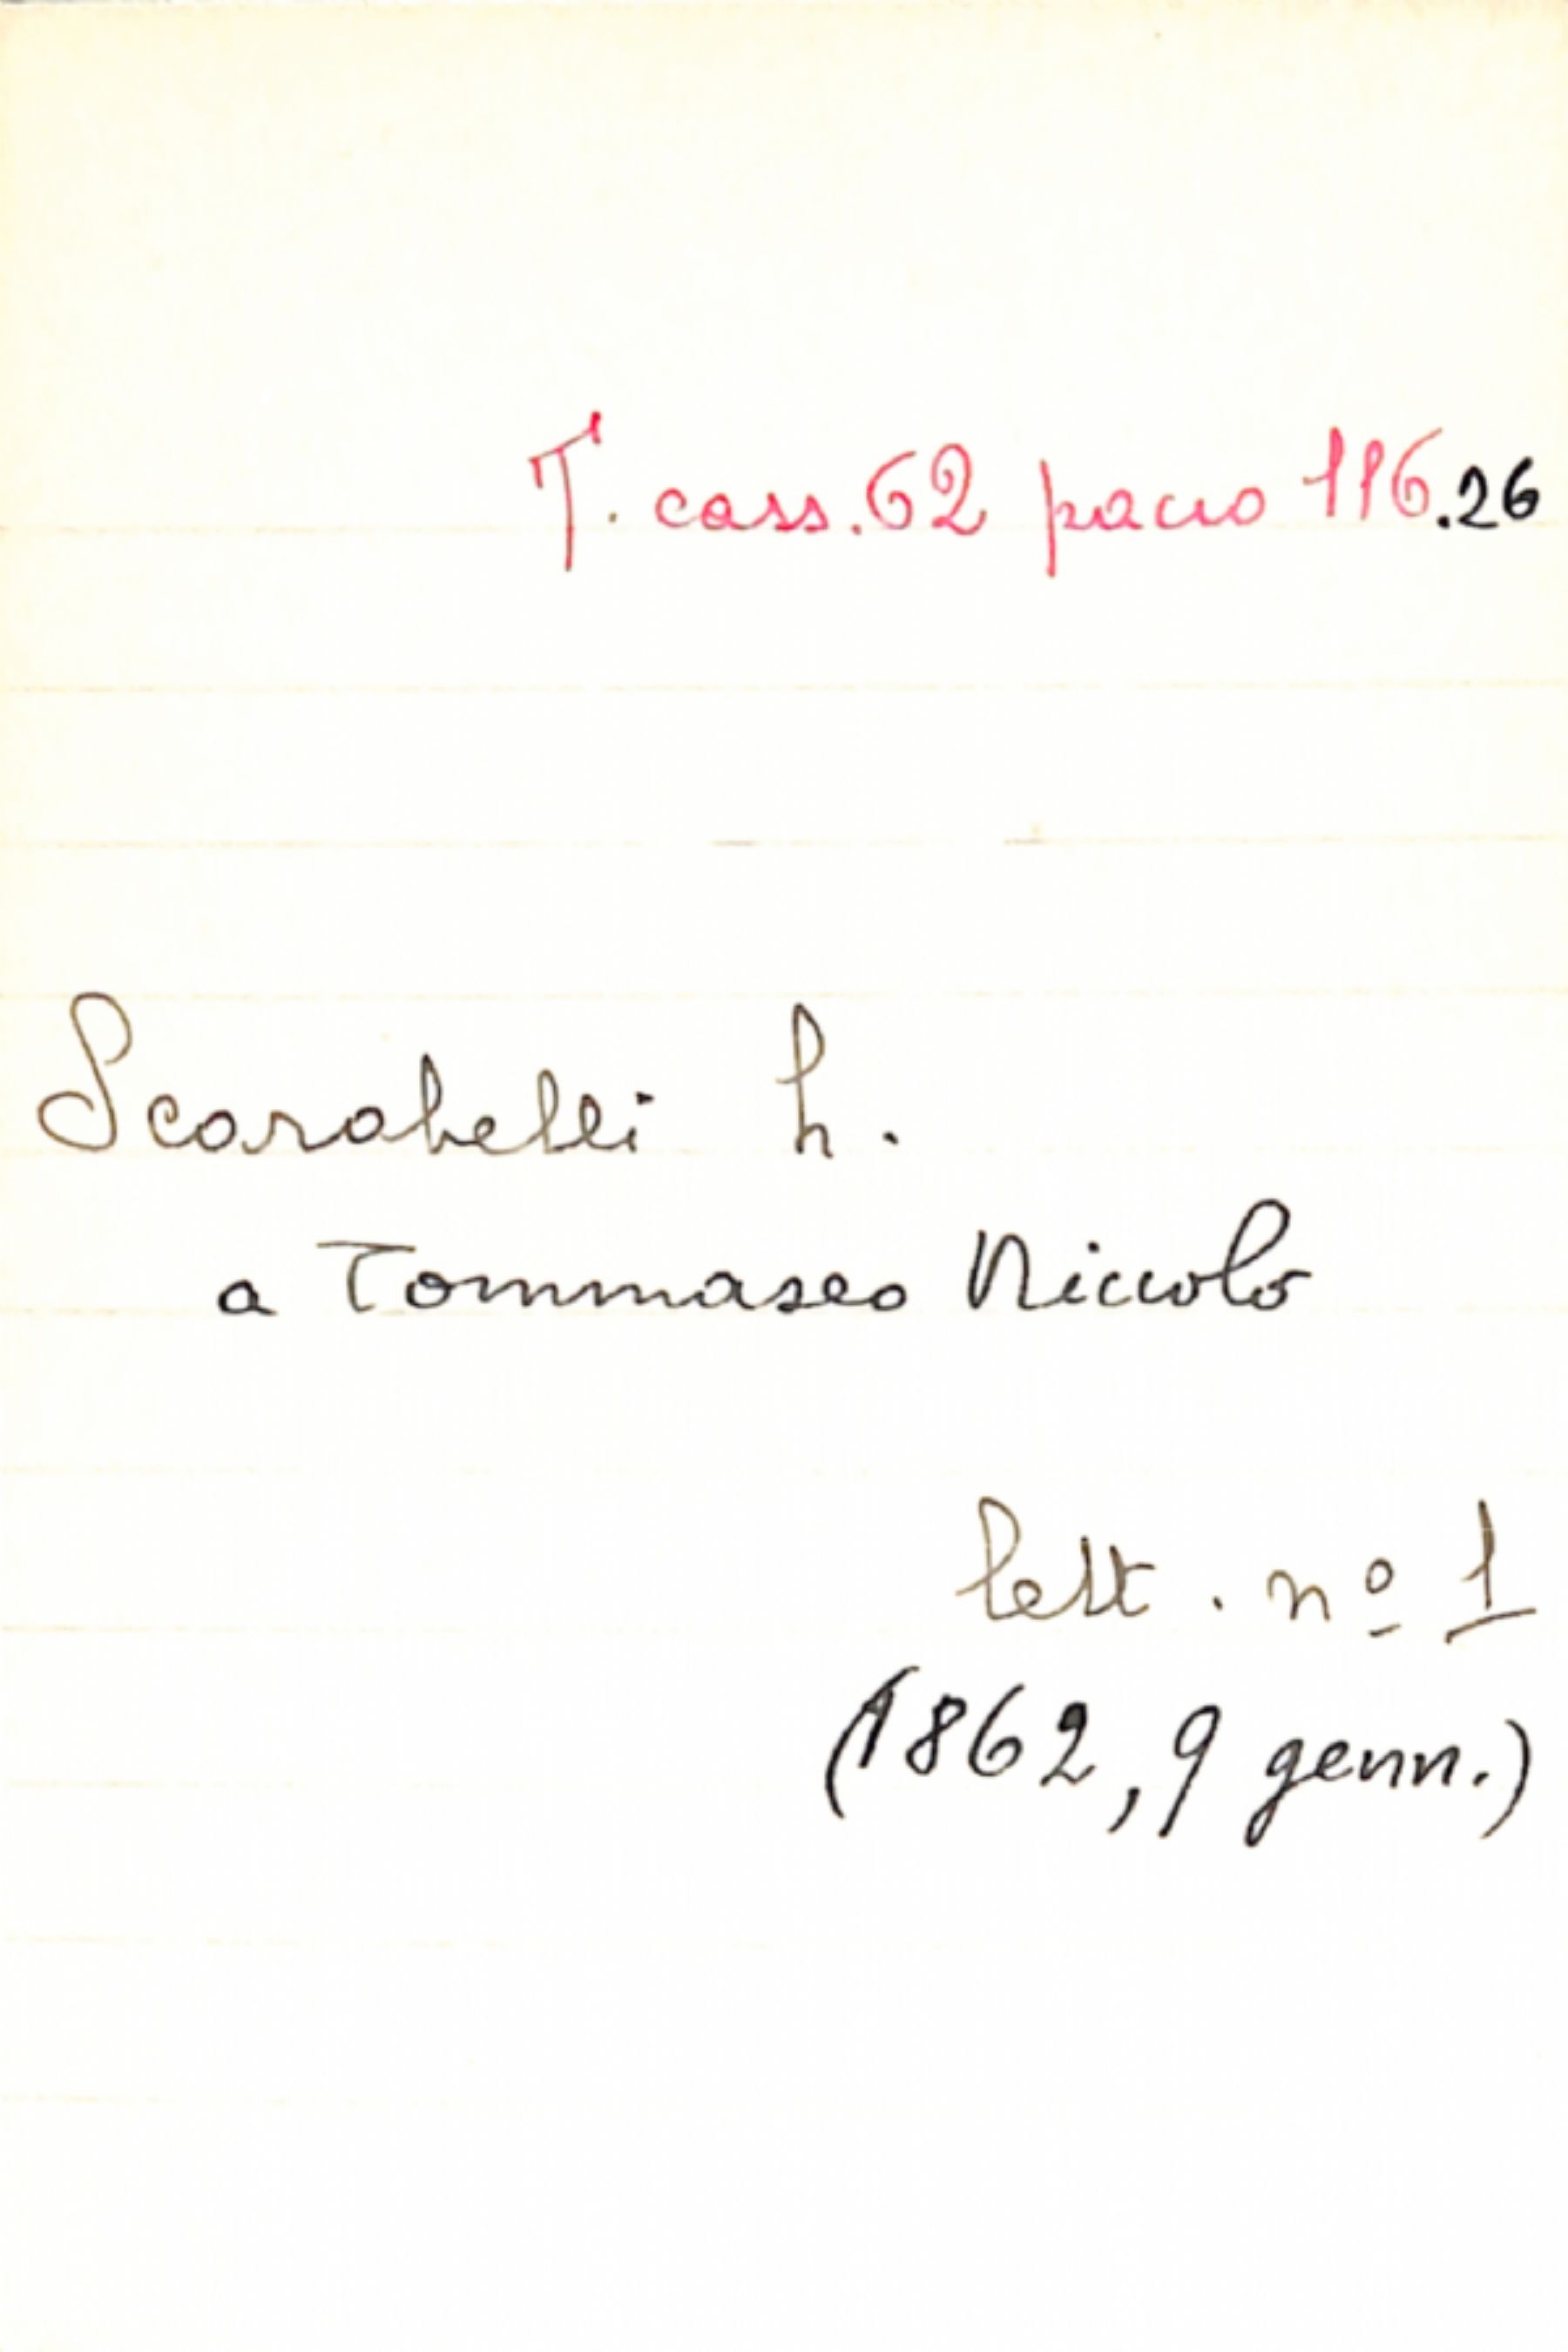 T. cass. 62 pacco 116.26
Scarabelli L.
a Tommaseo Niccolo
lett. nº 1
(1862, 9 genn.)